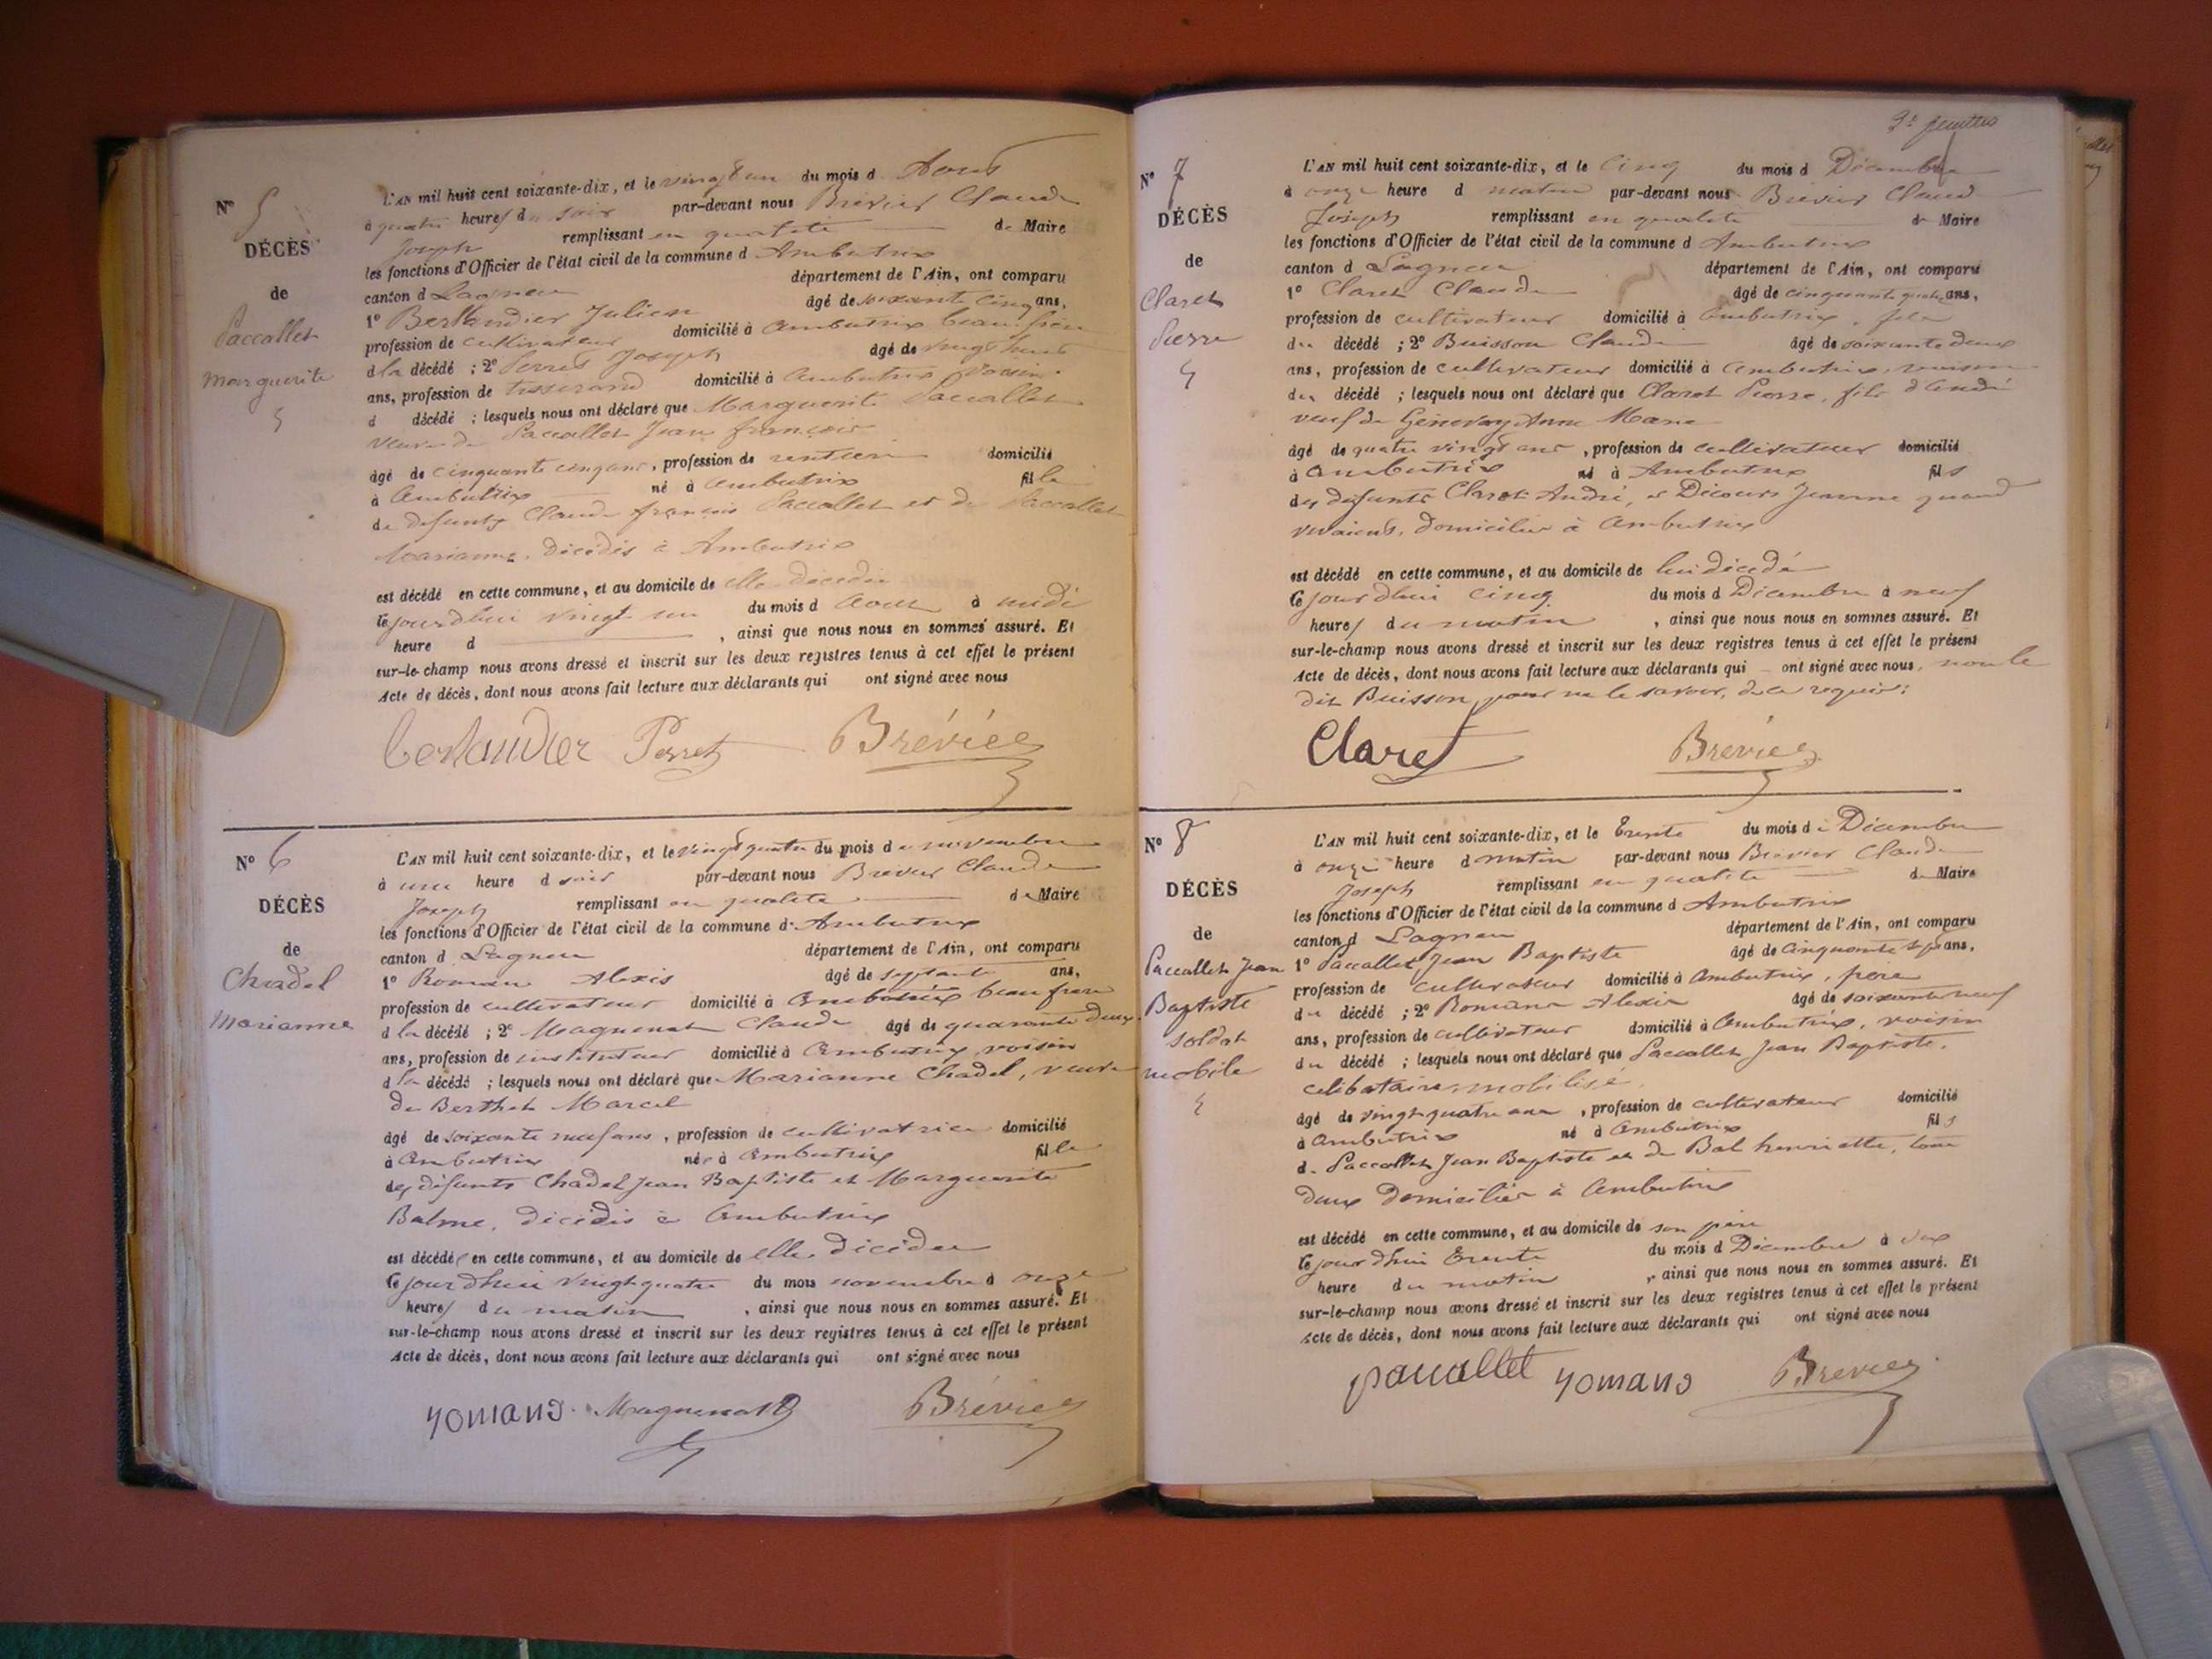 N° 5
DÉCÈS
de
Paccallet
Marguerite
L'AN mil huit cent soixante-dix, et le vingt un du mois d Aout
à quatre heures du soir par-devant nous Brévier Claude
Joseph remplissant en qualité de Maire
les fonctions d'Officier de l'état civil de la commune d Ambutrix
canton d Lagneu département de l'Ain, ont comparu
1° Berlandier Julien âgé de soixante cinq ans,
profession de cultivateur domicilié à Ambutrix beau frère
d la décédé ; 2° Perret Joseph âgé de vingt huit
ans, profession de tisserand domicilié à Ambutrix voisin
d décédé ; lesquels nous ont déclaré que Marguerite Paccallet
veuve de Paccallet Jean françois
âgé de cinquante cinq ans, profession de rentière domicilié
à Ambutrix né à Ambutrix fille
de defunts Claude françois Paccallet et de Paccallet
Marianne, décédés à Ambutrix
est décédé en cette commune, et au domicile de elle décédée
le jourdhui vingt un du mois d Aout à midi
heure d , ainsi que nous nous en sommes assuré. Et
sur-le-champ nous avons dressé et inscrit sur les deux registres tenus à cet effet le présent
Acte de décès, dont nous avons fait lecture aux déclarants qui ont signé avec nous
Berlandier Perret Brévier
N° 6
DÉCÈS
de
Chadel
Marianne
L'AN mil huit cent soixante-dix, et le vingt quatre du mois de novembre
à une heure d soir par-devant nous Brévier Claude
Joseph remplissant en qualité de Maire
les fonctions d'Officier de l'état civil de la commune d Ambutrix
canton d Lagneu département de l'Ain, ont comparu
1° Roman Alexis âgé de septante ans,
profession de cultivateur domicilié à Ambutrix beau frere
d la décédé ; 2° Magnenat Claude âgé de quarante deux
ans, profession de instituteur domicilié à Ambutrix voisin
d la décédé ; lesquels nous ont déclaré que Marianne Chadel, veuve
de Berthet Marcel
âgé de soixante neuf ans, profession de cultivatrice domicilié
à Ambutrix née à Ambutrix fille
des défunts Chadel Jean Baptiste et Marguerite
Balme, décédés à Ambutrix
est décédée en cette commune, et au domicile de elle décédée
le jourdhui vingt quatre du mois novembre à onze
heures du matin , ainsi que nous nous en sommes assuré. Et
sur-le-champ nous avons dressé et inscrit sur les deux registres tenus à cet effet le présent
Acte de décès, dont nous avons fait lecture aux déclarants qui ont signé avec nous
romand Magnenat Brévier
N° 7
DÉCÈS
de
Claret
Pierre
L'AN mil huit cent soixante-dix, et le cinq du mois d Décembre
à onze heure d matin par-devant nous Brévier Claud
Joseph remplissant en qualité de Maire
les fonctions d'Officier de l'état civil de la commune d Ambutrix
canton d Lagneu département de l'Ain, ont comparu
1° Claret Claude âgé de cinquante quatre ans,
profession de cultivateur domicilié à Ambutrix, fils
du décédé ; 2° Buisson Claude âgé de soixante deux
ans, profession de cultivateur domicilié à Ambutrix, voisin
du décédé ; lesquels nous ont déclaré que Claret Pierre, fils d'André
veuf de Génevay Anne Marie
âgé de quatre vingt ans, profession de cultivateur domicilié
à Ambutrix né à Ambutrix fils
des défunts Claret André, et Décours Jeanne quand
vivaient, domiciliés à Ambutrix
est décédé en cette commune, et au domicile de lui décédé
le jourdhui cinq du mois d Décembre à neuf
heures du matin , ainsi que nous nous en sommes assuré. Et
sur-le-champ nous avons dressé et inscrit sur les deux registres tenus à cet effet le présent
Acte de décès, dont nous avons fait lecture aux déclarants qui ont signé avec nous, non le
dit Buisson pour ne le savoir, de ce requis.
Claret Brévier
N° 8
DÉCÈS
de
Paccallet Jean
Baptiste
soldat
mobile
L'AN mil huit cent soixante-dix, et le trente du mois de Décembre
à onze heure d matin par-devant nous Brévier Claude
Joseph remplissant en qualité de Maire
les fonctions d'Officier de l'état civil de la commune d Ambutrix
canton d Lagneu département de l'Ain, ont comparu
1° Paccallet Jean Baptiste âgé de cinquante sept ans,
profession de cultivateur domicilié à Ambutrix, père
du décédé ; 2° Romand Alexis âgé de soixante neuf
ans, profession de cultivateur domicilié à Ambutrix, voisin
du décédé ; lesquels nous ont déclaré que Paccallet Jean Baptiste,
célibataire mobilisé,
âgé de vingt quatre ans, profession de cultivateur domicilié
à Ambutrix né à Ambutrix fils
de Paccallet Jean Baptiste et de Bal henriette, tous
deux domiciliés à Ambutrix
est décédé en cette commune, et au domicile de son père
le jourdhui trente du mois d Décembre à dix
heure du matin , ainsi que nous nous en sommes assuré. Et
sur-le-champ nous avons dressé et inscrit sur les deux registres tenus à cet effet le présent
Acte de décès, dont nous avons fait lecture aux déclarants qui ont signé avec nous
paccallet romand Brévier